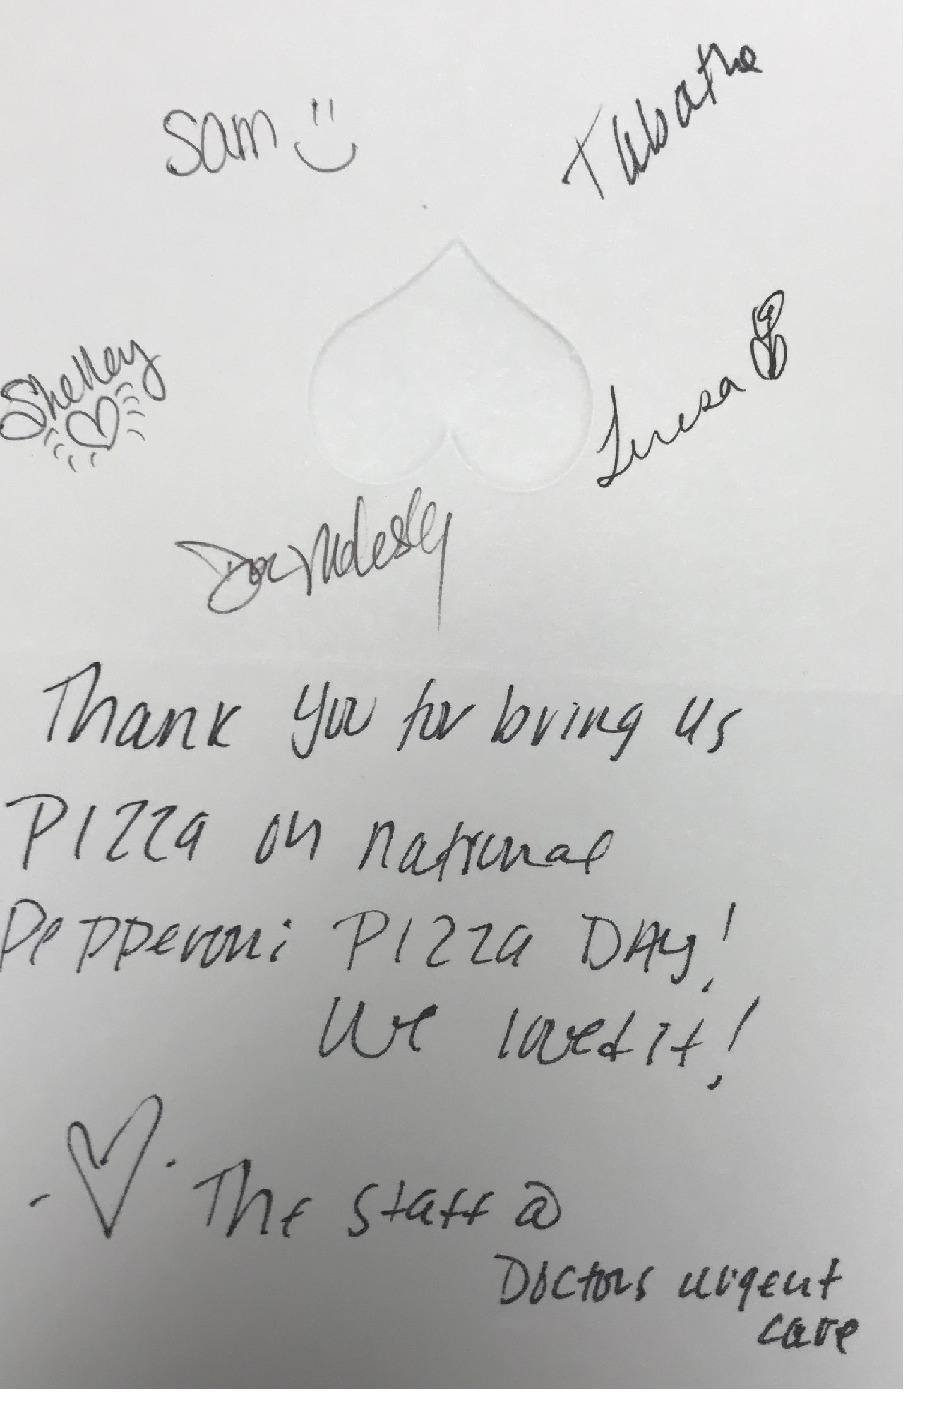 Sam
Tabatha
Shelley
Teresa
Thank you for bring us
Pizza on national
Pepperoni Pizza Day!
We loved it!
The staff @
Doctors urgent
care